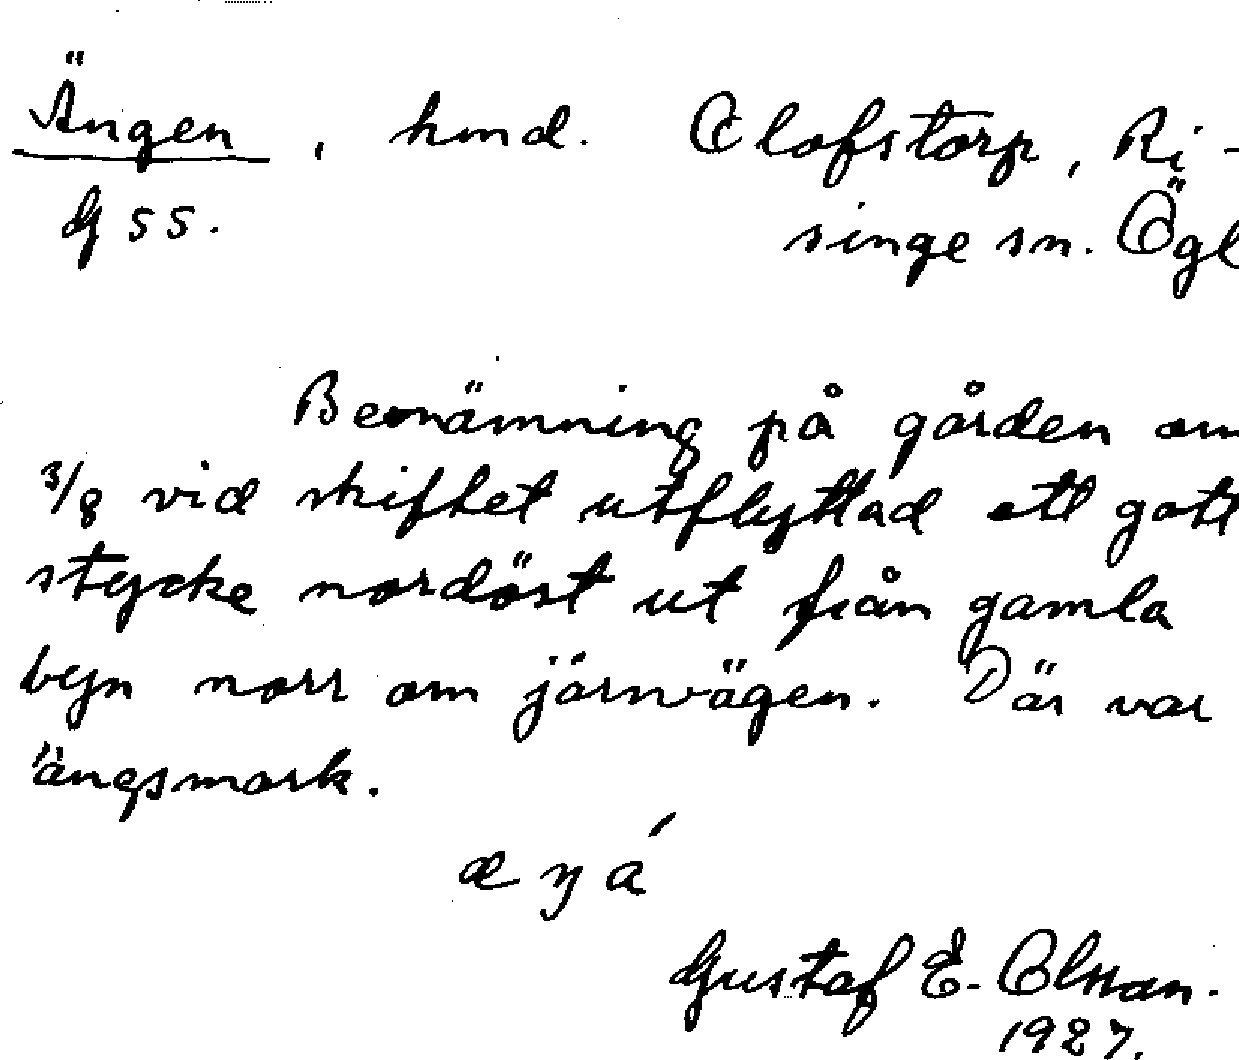 Ängen, hmd. Olofstorp, Ri-
G 55. singe sn. Ögl
Benämning på gården om
3/8 vid skiftet utflyttad ett gott
stycke nordöst ut från gamla
byn norr om järnvägen. Där var
ängsmark.
æŋá
Gustaf E. Olsson.
1927.